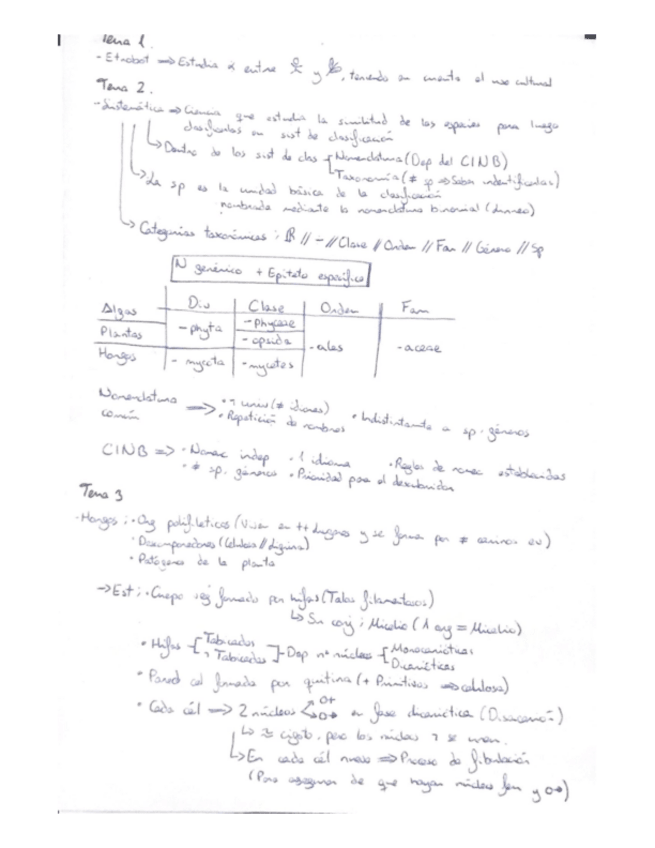 Tema 1.
- Etnobot ⇒ Estudia α entre y , teniendo en cuenta el uso cultural
Tema 2.
- Sistemática ⇒ Ciencia que estudia la similitud de las especies para luego
clasificarlas en sist de clasificación
↳ Dentro de los sist de clas { Nomenclatura (Dep del CINB)
Taxonomía (≠ sp ⇒ Saber indentificarlas)
↳ La sp es la unidad básica de la clasificación
nombrada mediante la nomenclatura binomial (Linneo)
↳ Categorías taxonómicas ; R // - // Clase // Orden // Fam // Género // Sp
N genérico + Epíteto específico
Div Clase Orden Fam
Algas - phyta - phyceae - ales - aceae
Plantas - opsida
Hongos - mycota - mycetes
Nomenclatura común ⇒ • ┐ univ (≠ idiomas) • Indistintamente a sp. géneros
• Repetición de nombres
CINB ⇒ • Nomec indep • 1 idioma • Reglas de nomec establecidas
• ≠ sp. géneros • Prioridad para el descubridor
Tema 3
- Hongos ; • Org polifiléticos (Viven en ++ lugares y se forma por ≠ caminos ev)
• Descomponedores (Celulosa // Lignina)
• Patógenos de la planta
→ Est ; • Cuerpo veg formado por hifas (Talos filamentosos)
↳ Su conj ; Micelio (1 org = Micelio)
• Hifas { Tabicadas ┐ Tabicadas } Dep nº núcleos { Monocarióticas Dicarióticas
• Pared cel formada por quitina (+ Primitivos ⇒ celulosa)
• Cada cél ⇒ 2 núcleos en fase dicariótica
↳ ≈ cigoto, pero los núcleos ┐ se unen.
↳ En cada cél nueva ⇒ Proceso de fibulación
(Para asegurar de que hayan núcleos fem y )